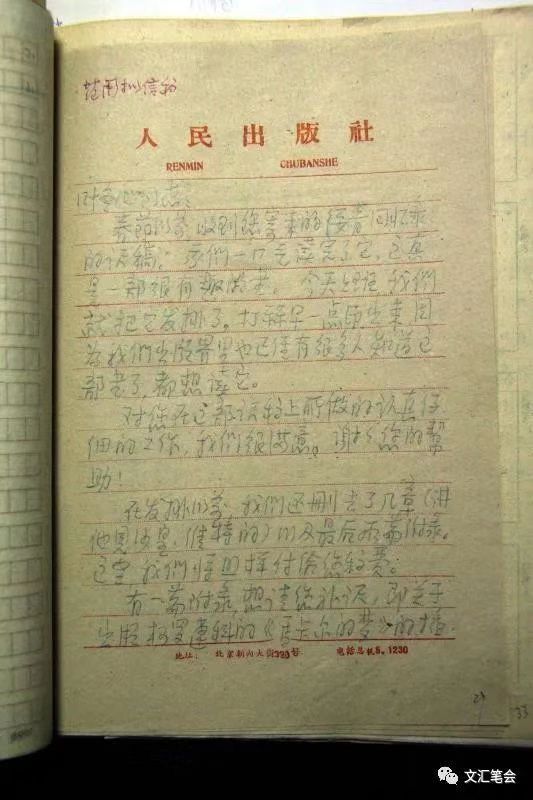 范用拟信稿
人民出版社
RENMIN CHUBANSHE
叶冬心同志：
春节以前收到您寄来的绥青回忆录
的译稿；我们一口气读完了它，这真
是一部很有趣的书。今天上班，我们
就把它发排了。打算早一点印出来，因
为我们出版界里也已经有很多人知道这
部书了，都想读它。
对您在这部译稿上所做的认真仔
细的工作，我们很满意。谢谢您的帮
助！
在发排以前，我们还删去了几章（讲
他见沙皇、维特的）以及最后两篇附录。
这里，我们将回样付给您较费。
有一篇附录，想请您补译，即关于
出版柯罗连科的《马卡尔的梦》的插
地址：北京朝内大街320号 电话总机5。1230
29
33
文汇笔会